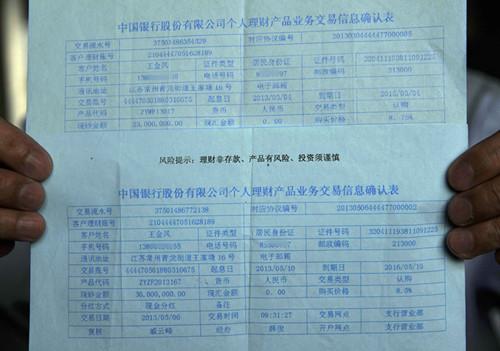 中国银行股份有限公司个人理财产品业务交易信息确认表
交易流水号 37503486354329 对应协议编号 20130304444477000005
客户理财账号 21044447051628189
客户姓名 王金凤 证件类型 居民身份证 证件号码
手机号码 电话号码 邮政编码 213000
通讯地址 江苏常州青龙街道王家塘16号 电子邮箱
交易账号 起息日 2013/05/04 到期日
产品代码 货币 人民币 交易类型 认购
现钞金额 现汇金额 0.00 购买价格 8.75%
风险提示:理财非存款、产品有风险、投资须谨慎
中国银行股份有限公司个人理财产品业务交易信息确认表
交易流水号 37501486772138 对应协议编号 20130506444477000002
客户理财账号 21044447051628189
客户姓名 王金凤 证件类型 居民身份证 证件号码
手机号码 电话号码 邮政编码 213000
通讯地址 江苏常州青龙街道王家塘16号 电子邮箱
交易账号 起息日 2013/05/10 到期日 2016/05/10
产品代码 ZYZF2013167 货币 人民币 交易类型 认购
现钞金额 现汇金额 0.00 购买价格
分红方式 现金分红 备注
交易日期 2013/05/06 交易时间 09:31:27 交易网点 支行营业部
复核 戚云峰 经办 开户网点 支行营业部